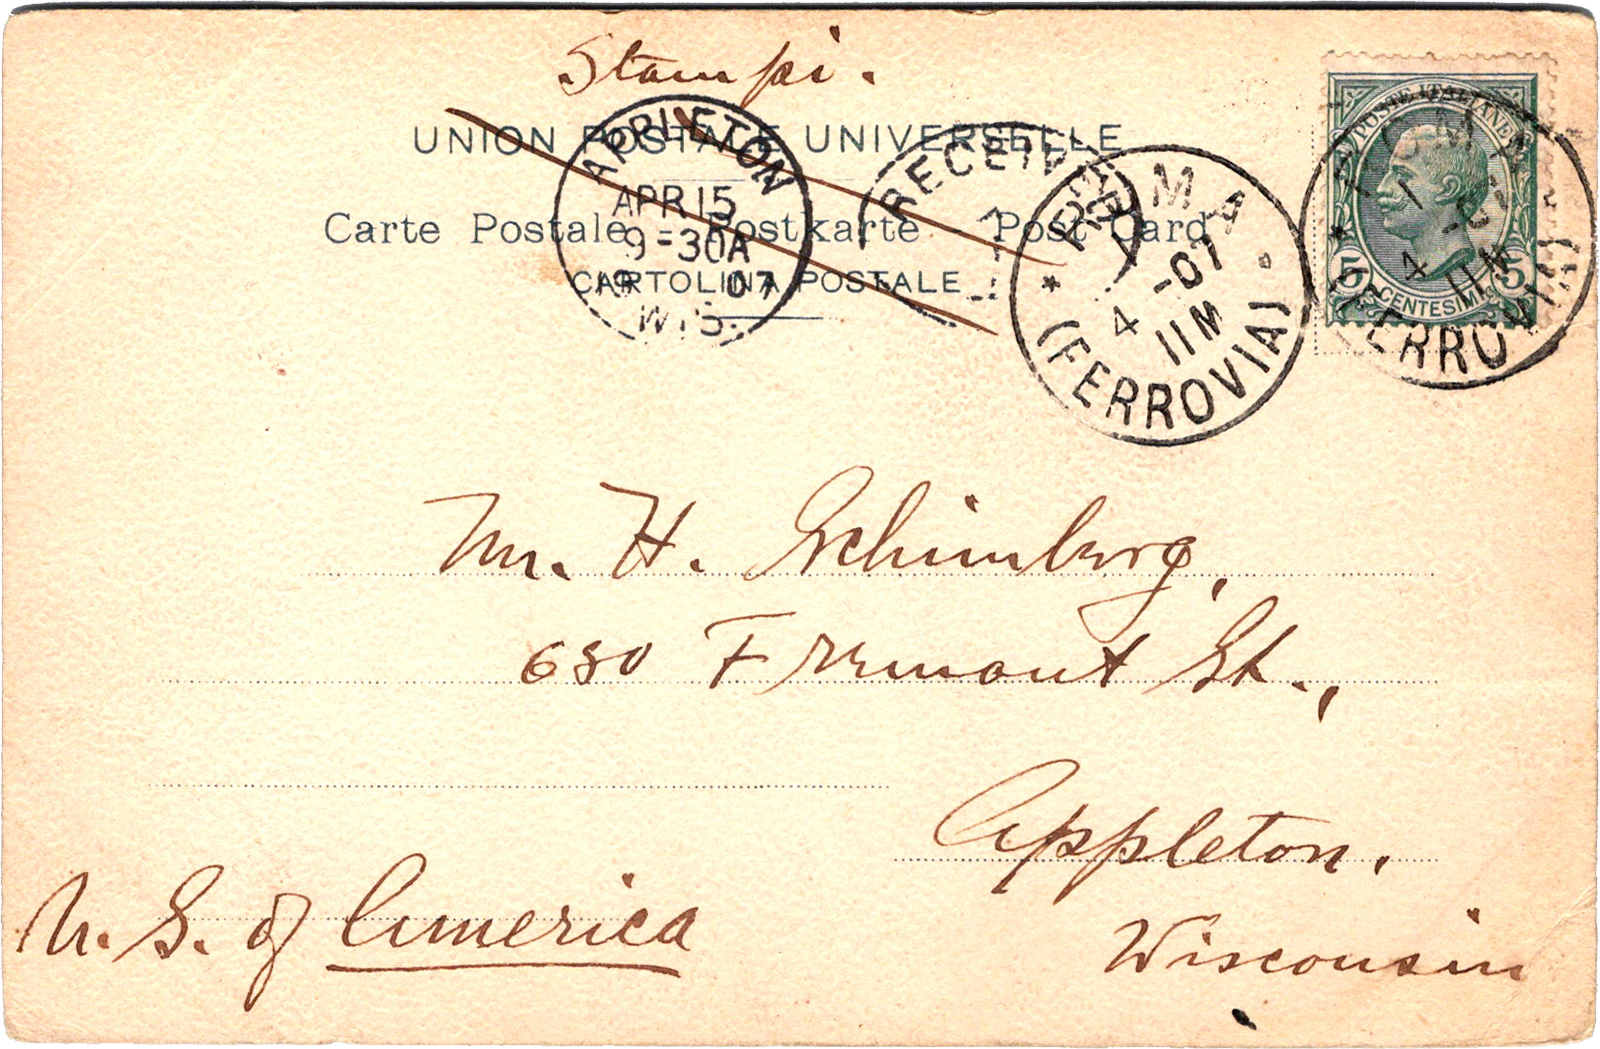 Stampi.
UNION POSTALE UNIVERSELLE
Carte Postale Postkarte Post Card
CARTOLINA POSTALE
APPLETON
APR 15
9-30A
19 07
WIS.
RECEIVED
ROMA
4 -07
11M
* (FERROVIA) *
POSTE ITALIANE
5 CENTESIMI 5
ROMA
4 -07
11M
(FERROVIA)
Mr. H. Schimberg,
680 Fremont St.,
Appleton.
Wisconsin
U. S. of America